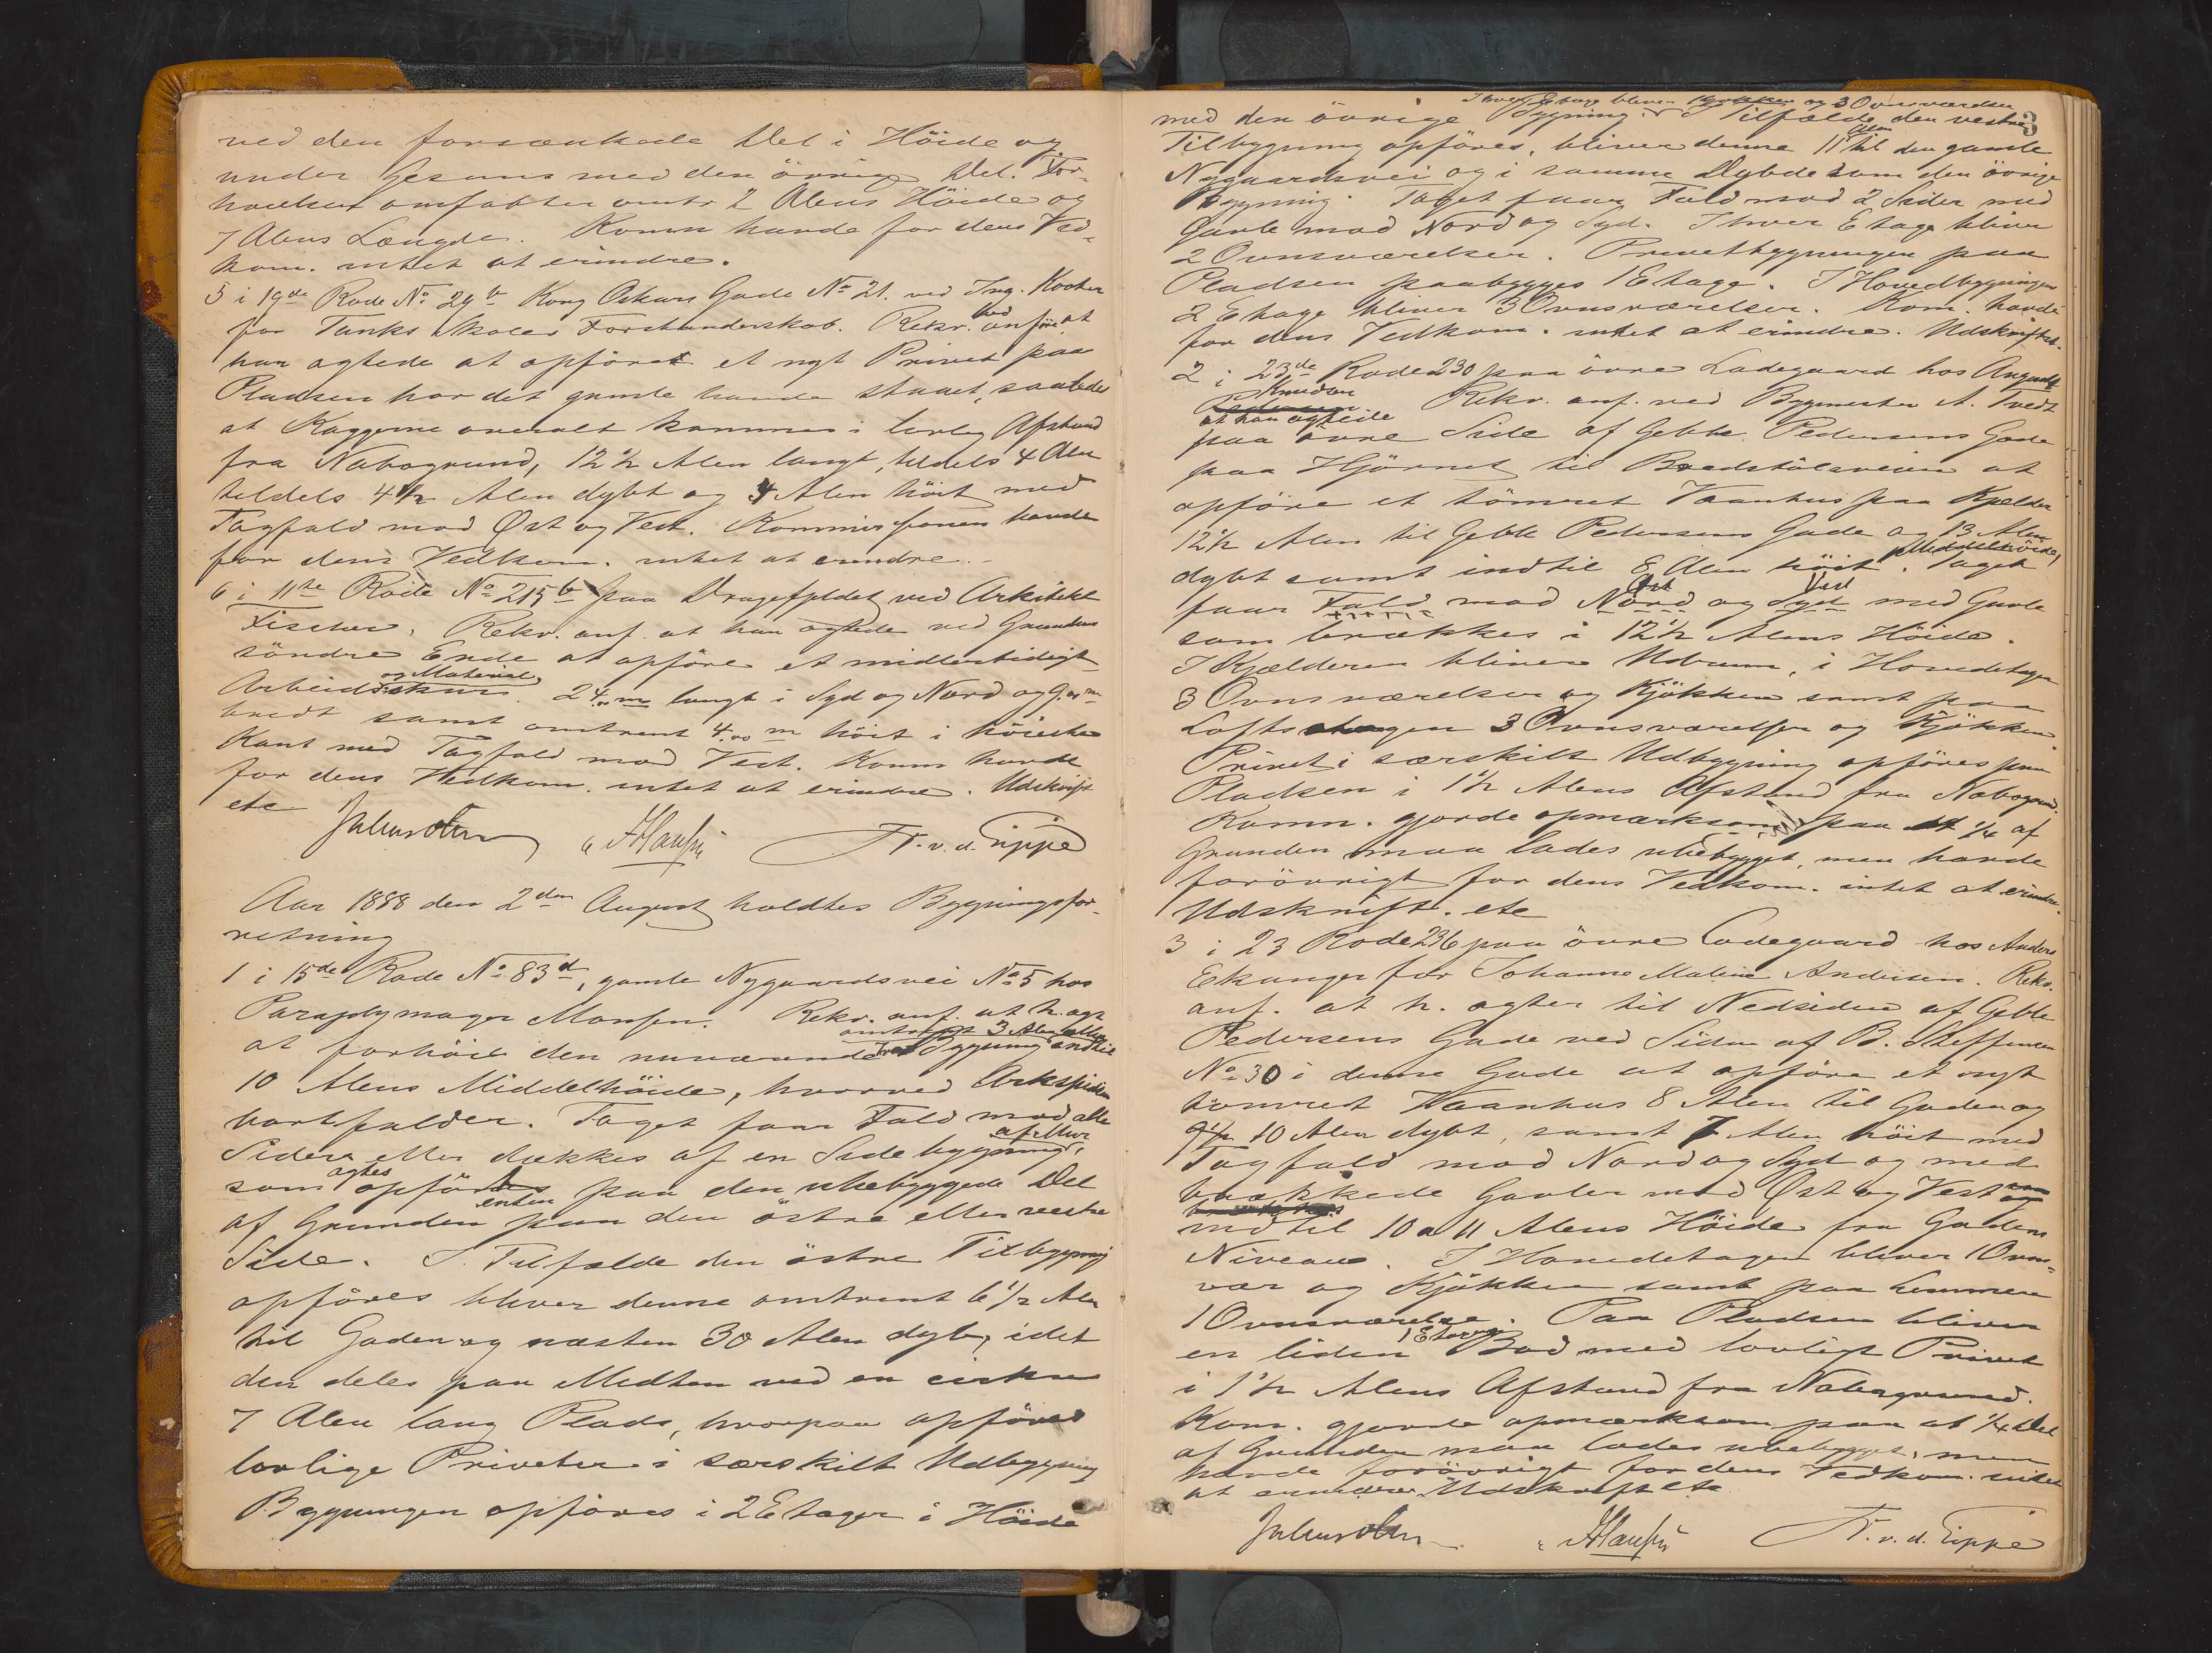 ved den forsænkede Del i Höide og
under Gesims med den övrige Del. For-
höielsen omfatter omtr 2 Alens Höide og
7 Alens Længde. Komn havde for dens Ved-
kom. intet at erindre.
5 i 19de Rode No 29b Kong Oskars Gade No 21. ved Ing. Kooter
for Tanks Skoles Forstanderskab. Rekv. anförte at
han agtede at opföre et nyt Privet paa
Pladsen hvor det gamle havde staaet, saaledes
at Væggerne overalt kommer i lovlig Afstand
fra Nabogrund, 12½ Alen langt, tildels 4 Alen
tildels 4½ Alen dybt og 4 Alen höit med
Tagfald mod Øst og Vest. Kommissionen havde
for dens Vedkom. intet at erindre.
6 i 11te Rode No 215b paa Dragefjeldet ved Arkitekt
Fischer. Rekv. anf. at han agtede ved Grundens
söndre Ende at opföre et midlertidigt
og Material
Arbeidsskur 24.00 m langt i Syd og Nord og 9.00 m
bredt samt omtrent 4.00 m höit i höieste
Kant med Tagfald mod Vest. Komn havde
for dens Vedkom. intet at erindre. Udskrift
etc
Fr. v. d. Lippe
Aar 1888 den 2den August holdtes Bygningsfor-
retning
1 i 15de Rode No 83d, gamle Nygaardsvei No 5 hos
Paraplymager Monsen. Rekv. anf. at h. agt
omtrent 3 Alen eller
at forhöie den nuværende Bygning indtil
10 Alens Middelhöide, hvorved
bortfalder. Taget faar Fald mod alle
af Mur
Sider eller dækkes af en Sidebygning,
agtes
som opföres paa den ubebyggede Del
enten
af Grunden paa den östre eller vestre
Side. I Tilfælde den östre Tilbygning
opföres bliver denne omtrent 6½ Alen
til Gaden og næsten 30 Alen dyb, idet
den deles paa Midten ved en cirka
7 Alen lang Plads, hvorpaa opföres
lovlige Priveter i særskilt Udbygning
Bygningen opföres i 2 Etager i Höide
3
I hver Etage bliver Kjøkken og 3 Ovnsværelser
med den övrige Bygning. I Tilfælde den vestre
Alen
Tilbygning opföres, bliver denne 11 til den gamle
Nygaardsvei og i samme Dybde som den övrige
Bygning. Taget faar Fald mod 2 Sider med
Gavle mod Nord og Syd. I hver Etage bliver
2 Ovnsværelser. Privetbygningen paa
Pladsen paabygges 1 Etage. I Hovedbygningen
2 Etage bliver 3 Ovnsværelser. Kom. havde
for dens Vedkom. intet at erindre. Udskrift
2 i 23de Rode 230 paa övre Ladegaard hos August
Knudsen
Rekv. anf. ved Bygmester A. Tvedt
at han agtede
paa övre Side af Geble Pedersens Gade
paa Hjörnet til Bredstölsveien at
opföre et tömret Vaanhus paa Kjelder
12½ Alen til Geble Pedersens Gade og 13 Alen
Middelhöide
dybt samt indtil 8 Alen höit. Taget
Øst Vest
faar Fald mod Nord og Syd med Gavle
som brækkes i 12½ Alens Höide.
I Kjælderen bliver Udrum, i Hovedetagen
3 Ovnsværelser og Kjökken samt paa
Loftsetagen 3 Ovnsværelser og Kjökken
Privet i særskilt Udbygning opföres paa
Pladsen i 1½ Alens Afstand fra Nabogrund.
Komn. gjorde opmærksom paa at ¼ af
Grunden maa lades ubebygget, men havde
forövrigt for dens Vedkom. intet at erindre.
Udskrift. etc
3 i 23 Rode 236 paa övre Ladegaard hos Anders
Ekanger for Johanne Malene Andersen. Rekv.
anf. at h. agter til Nedsiden af Geble
Pedersens Gade ved Siden af B. Steffensen
No 30 i denne Gade at opföre et nyt
tömret Vaanhus 8 Alen til Gaden og
9½ 10 Alen dybt, samt 7 Alen höit med
Tagfald mod Nord og Syd og med
brækkede Gavler mod Øst og Vest
indtil 10 a 11 Alens Höide fra Gadens
Niveau. I Hovedetagen bliver 1 Ovns-
vær og Kjökken samt paa Lemmen
1 Ovnsværelse. Paa Pladsen bliver
1 Etages
en liden Bod med lovligt Privet
i 1½ Alens Afstand fra Nabogrund.
Kom. gjorde opmærksom paa at ¼ Del
af Grunden maa lades ubebygget, men
havde forövrigt for dens Vedkom. intet
at erindre. Udskrift etc
Fr. v. d. Lippe